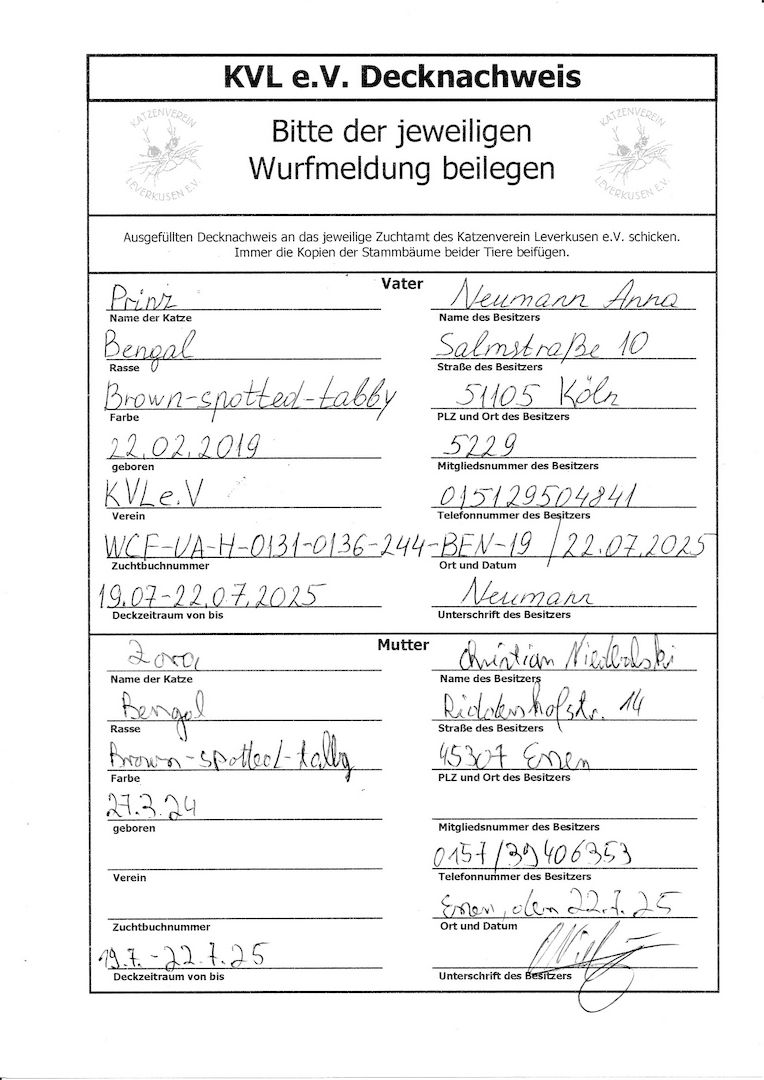 KVL e.V. Decknachweis
KATZENVEREIN
LEVERKUSEN E.V.
Bitte der jeweiligen
Wurfmeldung beilegen
KATZENVEREIN
LEVERKUSEN E.V.
Ausgefüllten Decknachweis an das jeweilige Zuchtamt des Katzenverein Leverkusen e.V. schicken.
Immer die Kopien der Stammbäume beider Tiere beifügen.
Vater
Prinz Neumann Anna
Name der Katze Name des Besitzers
Bengal Salmstraße 10
Rasse Straße des Besitzers
Brown-spotted-tabby 51105 Köln
Farbe PLZ und Ort des Besitzers
22.02.2019 5229
geboren Mitgliedsnummer des Besitzers
KVL e.V 015129504841
Verein Telefonnummer des Besitzers
WCF-UA-H-0131-0136-244-BEN-19 / 22.07.2025
Zuchtbuchnummer Ort und Datum
19.07-22.07.2025 Neumann
Deckzeitraum von bis Unterschrift des Besitzers
Mutter
Zora Christian
Name der Katze Name des Besitzers
Bengal 14
Rasse Straße des Besitzers
Brown-spotted-tabby 45307 Essen
Farbe PLZ und Ort des Besitzers
27.3.24
geboren Mitgliedsnummer des Besitzers
0157/39406353
Verein Telefonnummer des Besitzers
Essen, den 22.7.25
Zuchtbuchnummer Ort und Datum
19.7.-22.7.25
Deckzeitraum von bis Unterschrift des Besitzers